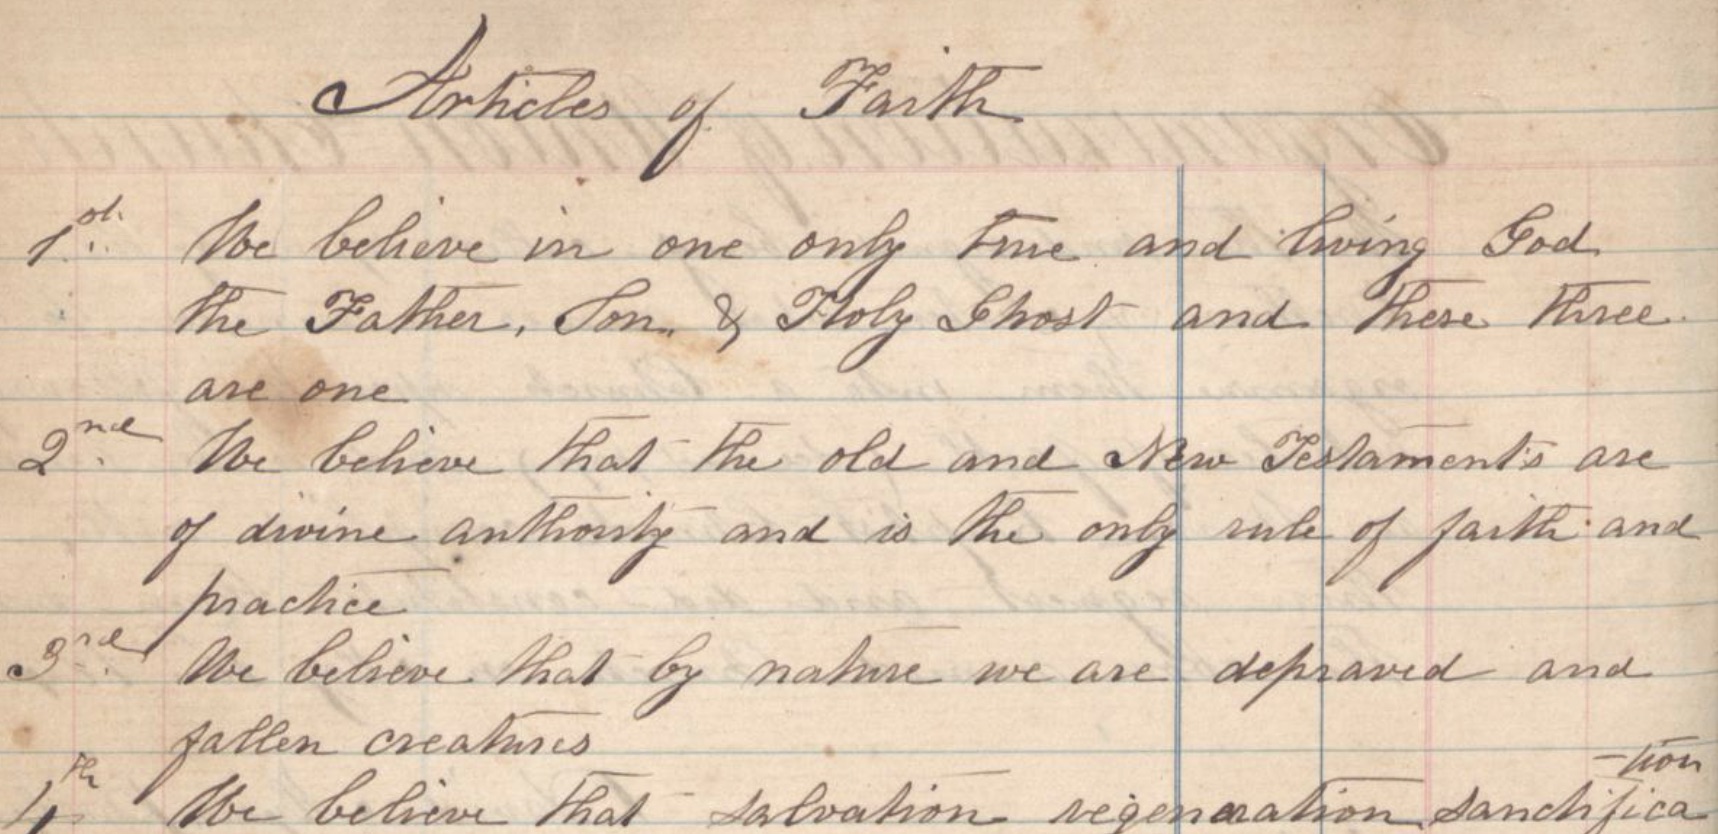 Articles of Faith
1st. We believe in one only true and living God
the Father, Son, & Holy Ghost and these three
are one
2nd. We believe that the old and New Testaments are
of divine authority and is the only rule of faith and
practice
3rd. We believe that by nature we are depraved and
fallen creatures
4th We believe that salvation regeneration sanctifica
-tion